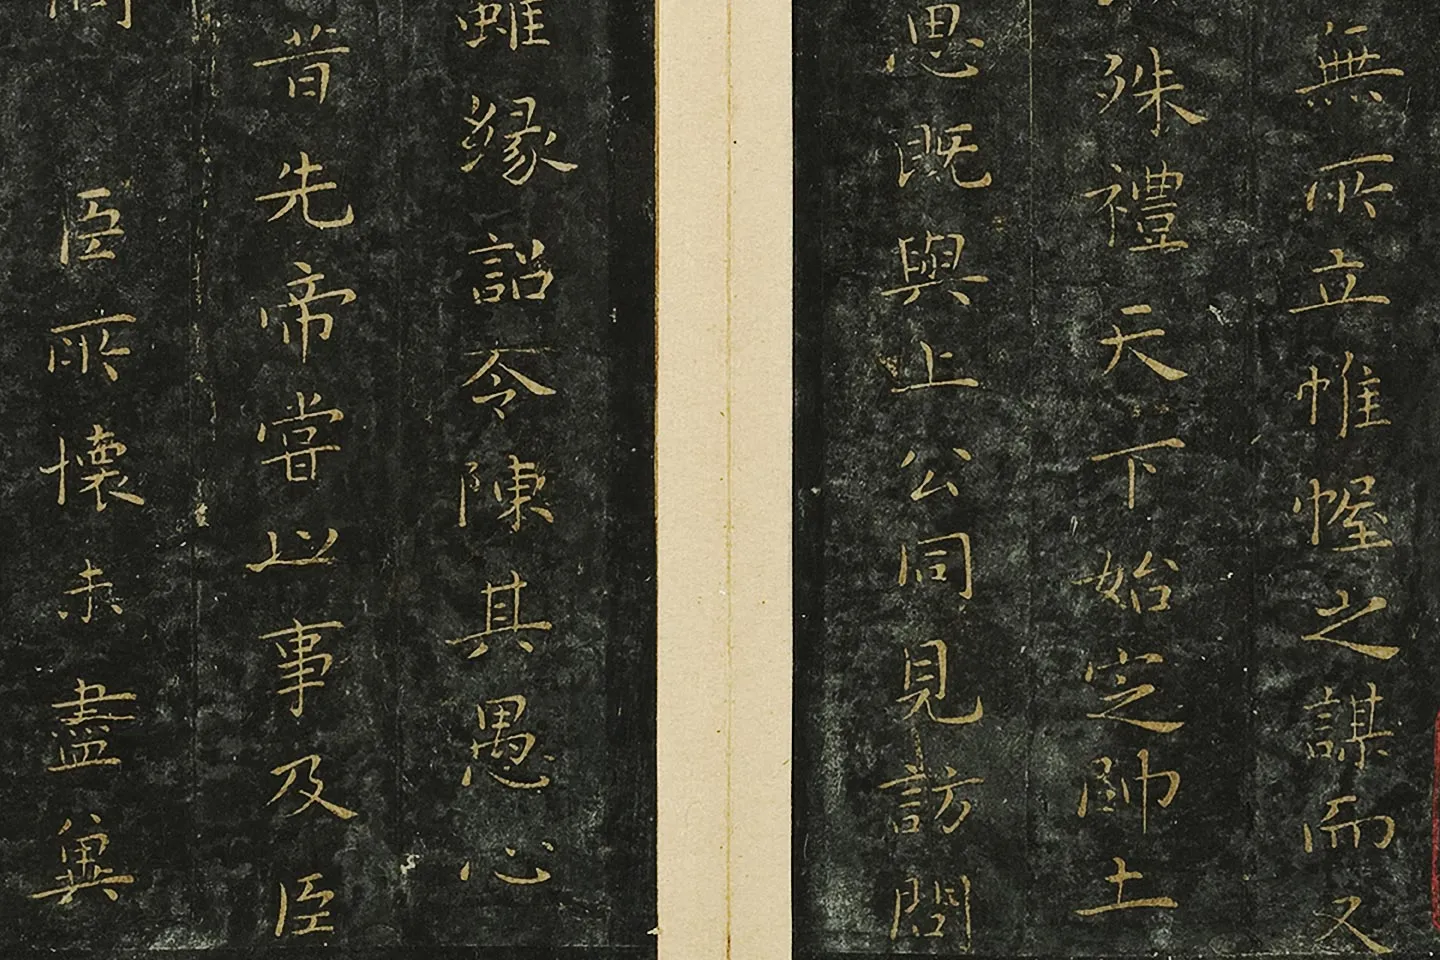 無所立帷幄之謀而又
殊禮天下始定帥土
思既輿上公同見訪問
雖緣詔令陳其愚心
昔先帝嘗以事及臣
臣所懷未盡冀